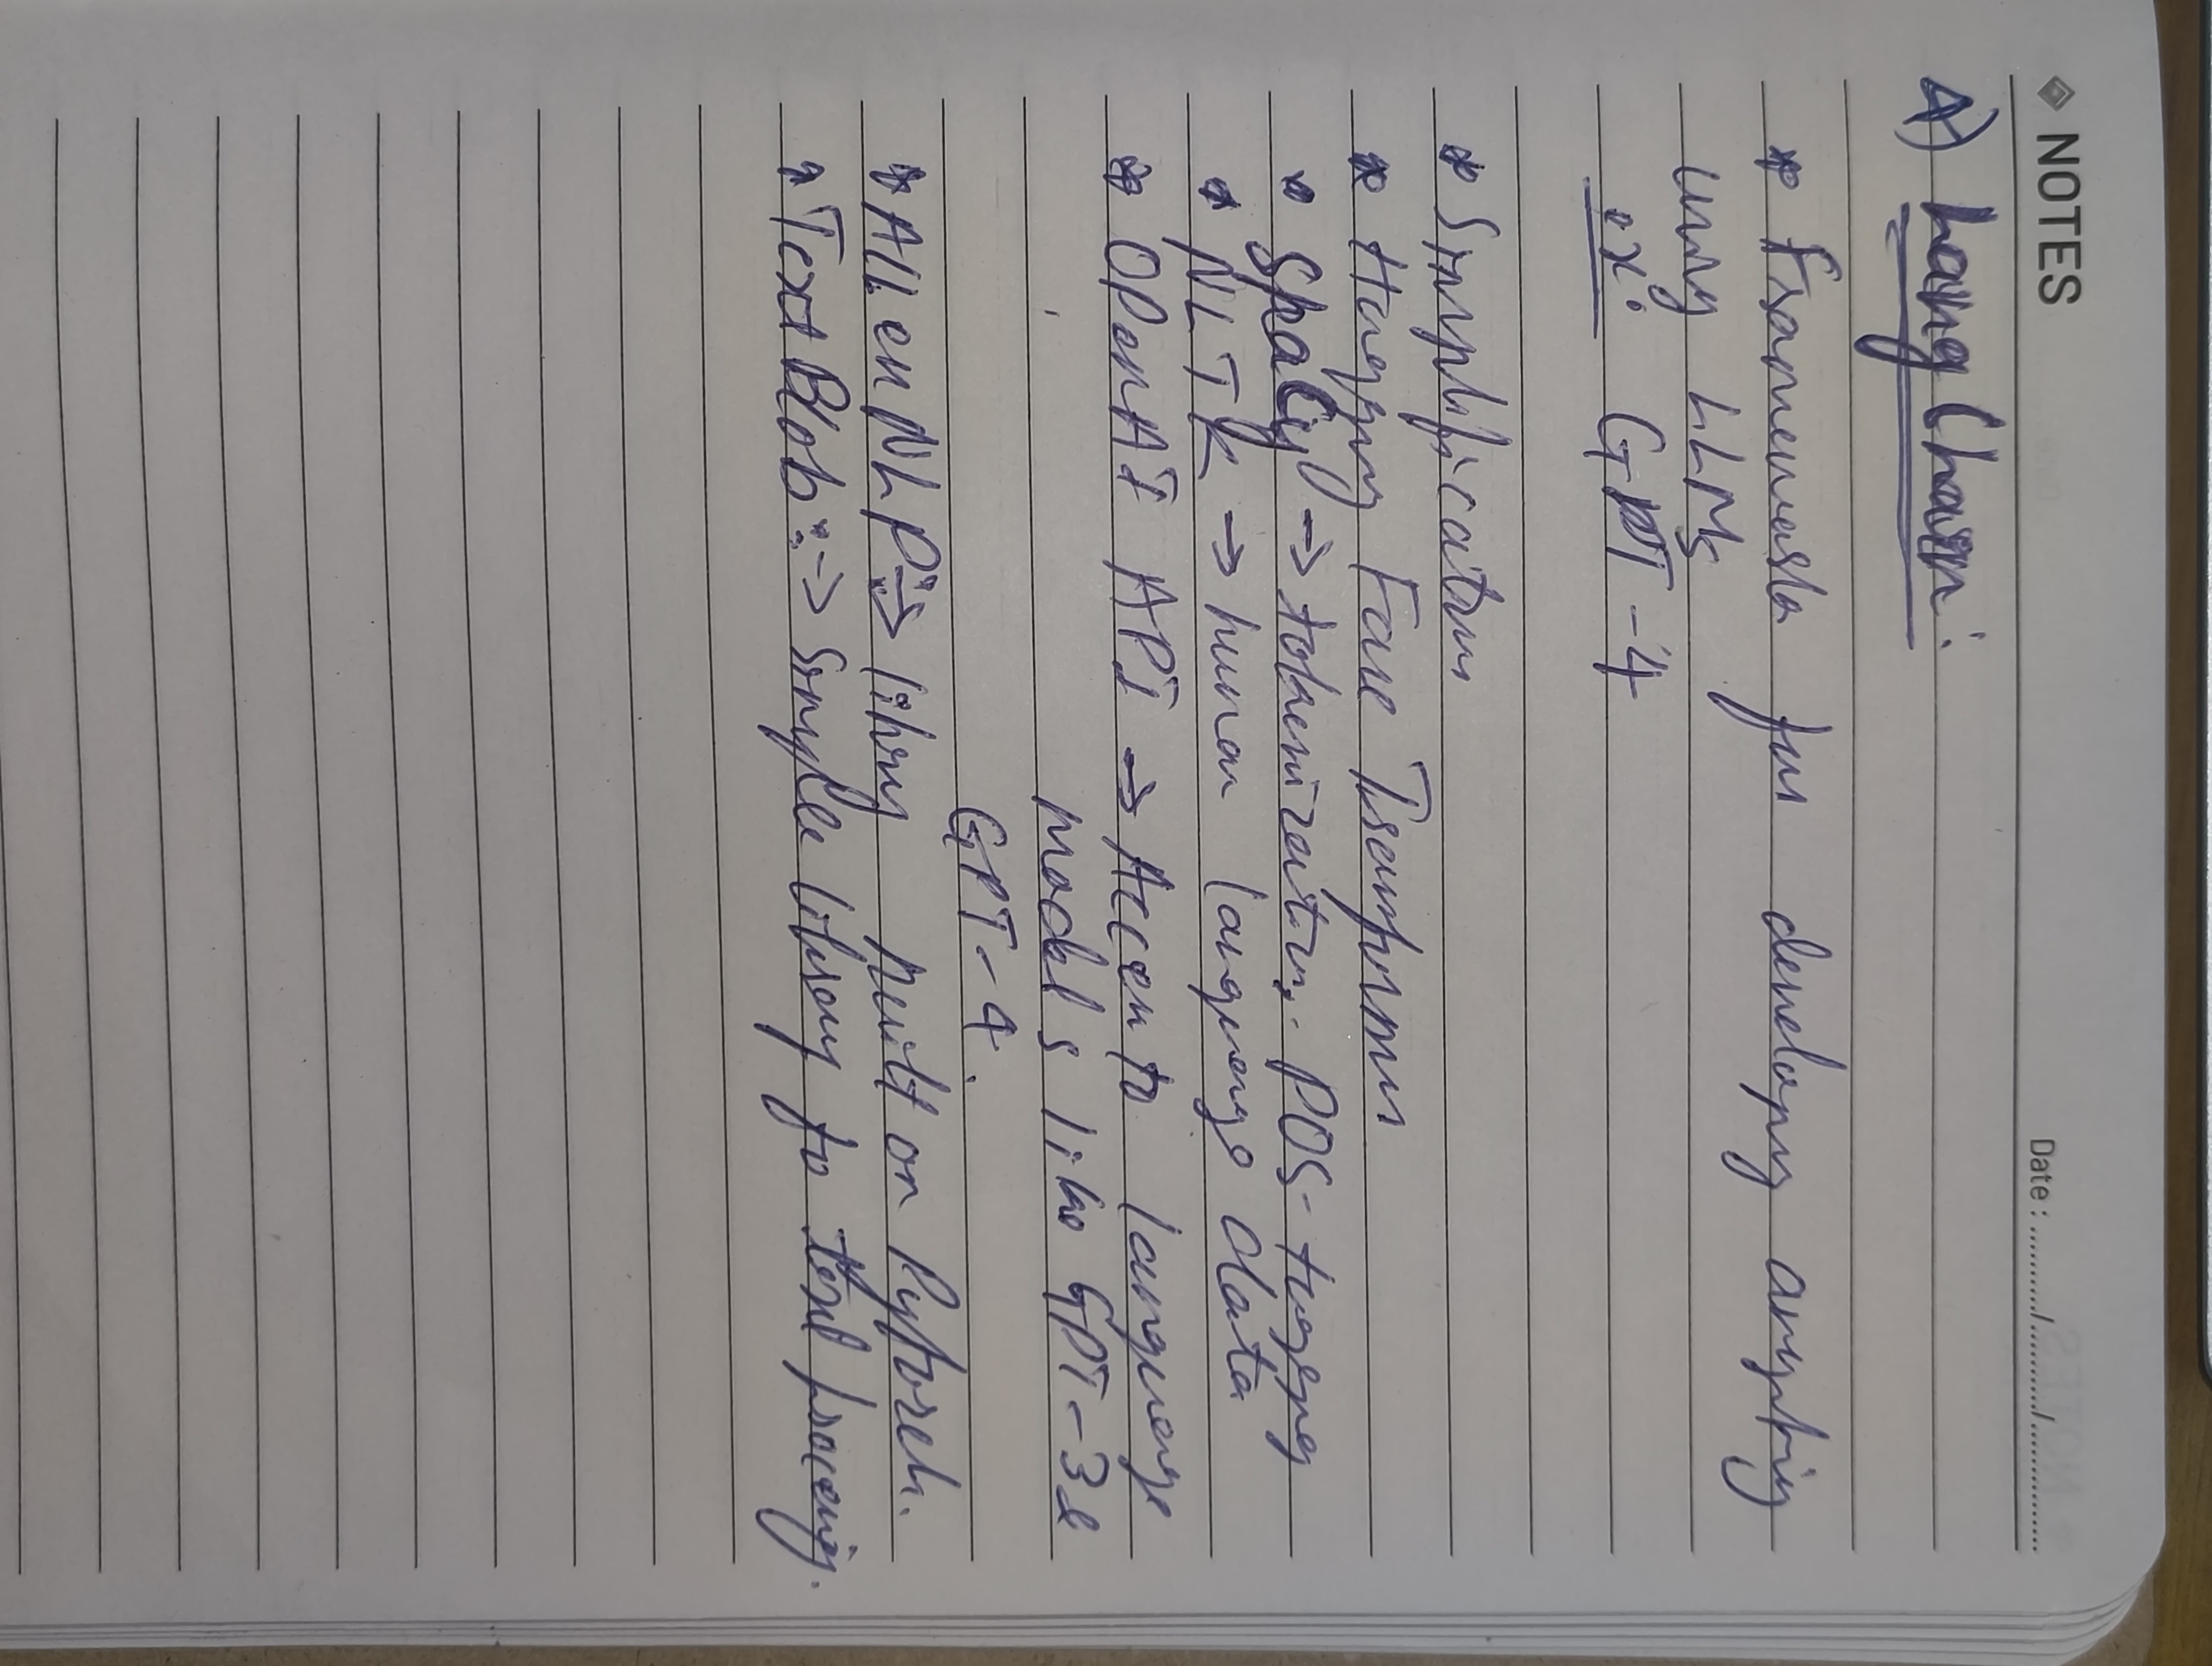 NOTES
Date : ........../........../..............
4) LangChain:
* Framework for developing anything
using LLMs
ex: GPT-4
* Simplification
* Hugging Face Transformers
* SpaCy → tokenization, POS-tagging
* NLTK → human language data
* OpenAI API → Access to language
models like GPT-3 &
GPT-4.
* AllenNLP: → library built on Pytorch.
* TextBlob: → Simple library for text processing.